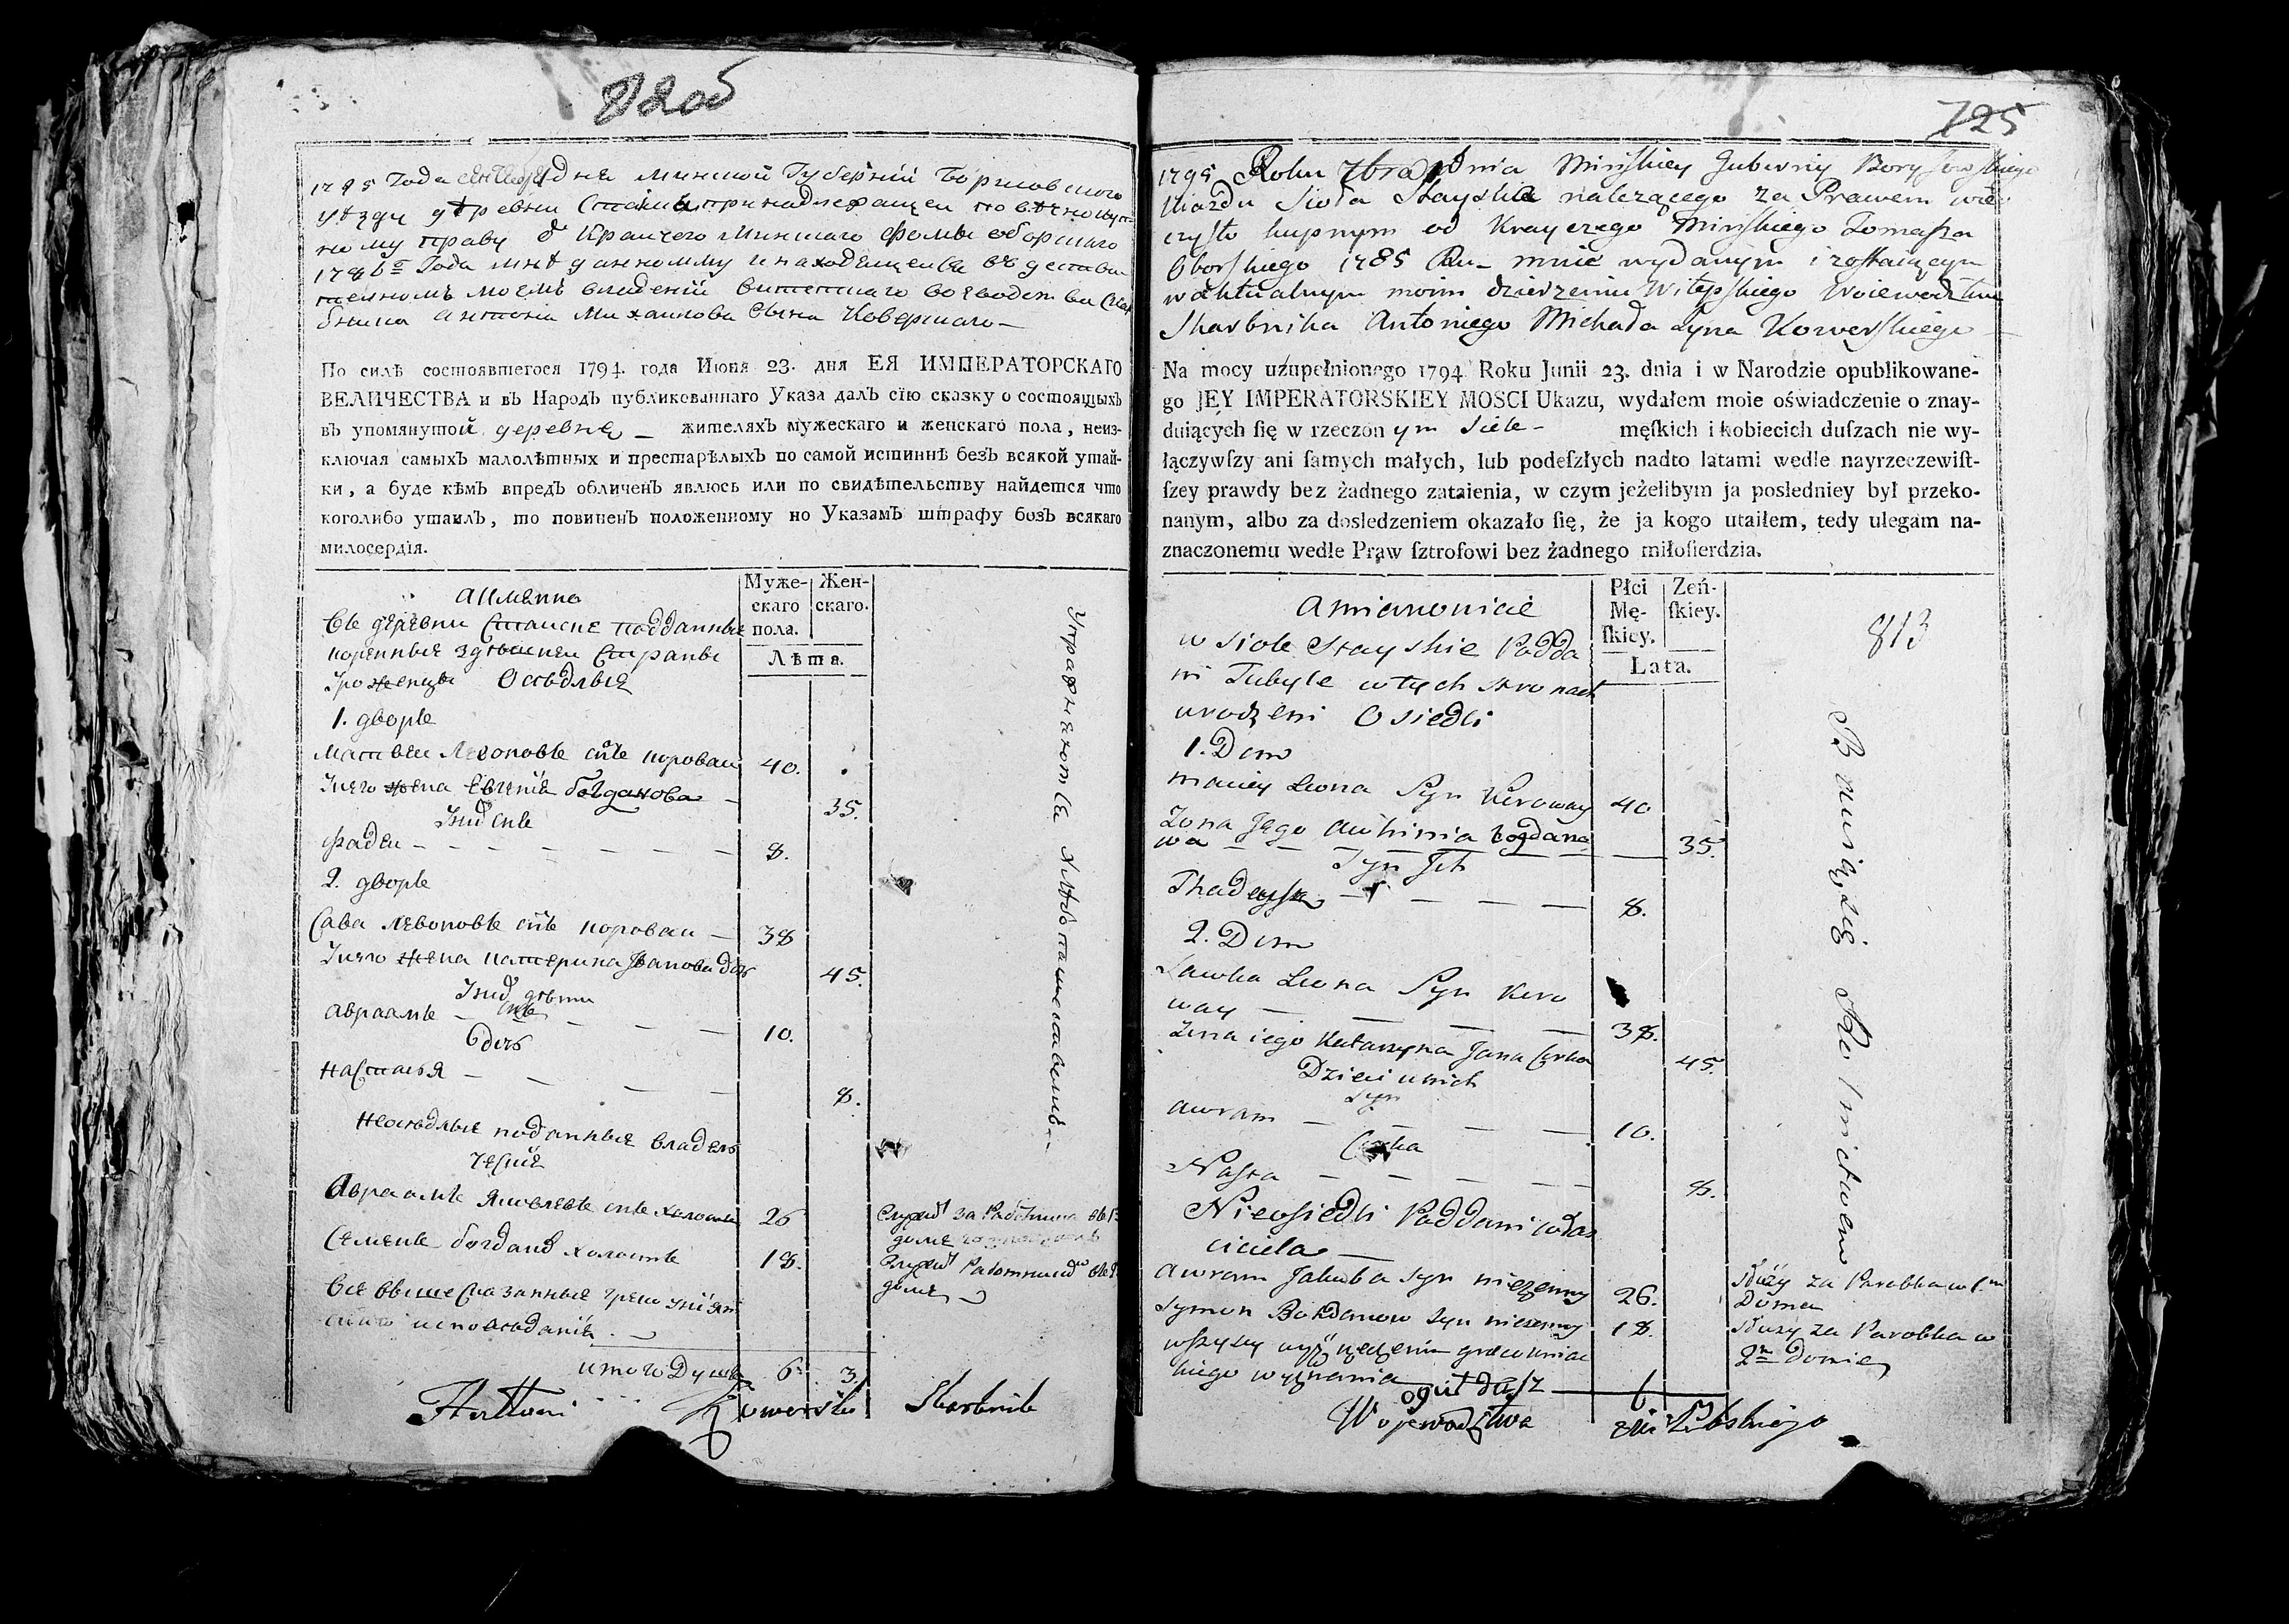 812об
1795 Года сентебра дня Минской Губернии Борисовского
уезду деревни Стаиска принадлежащеи по вечнокуп-
ному праву от Краичего Минскаго Фомы оборскаго
1785го Года мне данному и находящеися в деистви-
тельномъ моемъ владении витепскаго воеводства Скар
бника антониа Михаилова сына Коверскаго —
По силѣ состоявшегося 1794. года Июня 23. дня ЕЯ ИМПЕРАТОРСКАГО
ВЕЛИЧЕСТВА и въ Народъ публикованнаго Указа далъ сію сказку о состоящыхъ
въ упомянутой деревне — жителяхъ мужескаго и женскаго пола, неиз-
ключая самыхъ малолѣтныхъ и престарѣлыхъ по самой истиннѣ безъ всякой утай-
ки, а буде кѣмъ впредъ обличенъ явлюсь или по свидѣтельству найдется что
коголибо утаилъ, то повиненъ положенному по Указамъ штрафу безъ всякаго
милосердія.
аимянно
Муже-
скаго
пола.
Жен-
скаго.
Лѣта.
въ деревни Стаиске подданные
коренные здешнеи Страны
уроженцы Оседлые
1. дворъ
Матвеи Левоновъ снъ корован 40.
У него жена Евгения богданова — 35.
У них снъ
Фадеи — — — — — — 8.
2. дворъ
Сава Левоновъ снъ корован — 38
У него жена катерина Иванова дочь 45.
У них дети
снъ
авраамъ — — — — 10.
дочь
настасья — — — — 8.
Неоседлые подданные владель
ческие
Авраамъ Яковлевъ снъ холостъ 26
служит за Работника въ 1
доме
Семенъ богданов холостъ 18.
служит Работником въ 2
доме
все вышесказанные греко униат
скаго исповедания. —
итого Душъ 6. 3.
Упражняются хлебопашествомъ —
Antoni Kowerski Skarbnik
725
1795 Roku 7bra dnia Minſkiey Gubernij Boryſowſkiego
Uiazdu Sioła Stayska nalezącego za Prawem wie-
czyſto kupnym od Krayczego Minſkiego Tomaſza
Oborſkiego 1785 Ru — mnie wydanym i zoſtaiącym
w aktualnym moim dzierzeniu Witepſkiego Woiewodztwa
Skarbnika Antoniego Michała Syna Kowerſkiego —
Na mocy uzupełnionego 1794 Roku Junii 23. dnia i w Narodzie opublikowane-
go JEY IMPERATORSKIEY MOSCI Ukazu, wydałem moie oświadczenie o znay-
duiących ſię w rzeczonym Siele — męſkich i kobiecich duſzach nie wy-
łączywſzy ani ſamych małych, lub podeſzłych nadto latami wedle nayrzeczewiſt-
ſzey prawdy bez żadnego zataienia, w czym jeżelibym ja posledniey był przeko-
nanym, albo za dosledzeniem okazało ſię, że ja kogo utaiłem, tedy ulegam na-
znaczonemu wedle Praw ſztrofowi bez żadnego miłoſierdzia.
Amianowicie
Płci
Mę-
ſkiey.
Zeń-
ſkiey.
Lata.
813
w siole Stayskie Podda
ni Tubyle w tych stronach
urodzeni Osiedli
1. Dom
Maciey Leona Syn Keroway 40
Zona Jego Auhinia Bogdano
wa — — — — 35.
Syn Jch
Thadeuſz — — — — 8.
2. Dom
Sawka Leona Syn Kero
way — — — — 38.
Zona iego Katarzyna Jana Corka 45.
Dzieci u nich
Syn
Awram — — — — 10.
Corka
Naſta — — — — 8.
Nieoſiedli Poddani włas
ciciela —
Awram Jakuba Syn niezenny 26.
służy za Parobka w 1m
Domu
Symon Bohdanow Syn niezenny 18.
służy za Parobka w
2m Domie
wſzyscy wyż grecouniac
kiego wyznania
ogul dusz 6
Bawią się Rolnictwem
Wojewodztwa Witebskiego